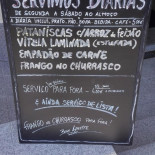 SERVIMOS DIÁRIAS
DE SEGUNDA A SÁBADO AO ALMOÇO
A DIÁRIA INCLUI, PRATO, PÃO, SOPA, BEBIDA, CAFÉ
PATANISCAS C/ARROZ e FEIJÃO
VITELA LAMINADA (ESTUFADA)
EMPADÃO DE CARNE
FRANGO NO CHURRASCO
SERVIÇO PARA FORA
E AINDA SERVIÇO DE LISTA!
FRANGO NO CHURRASCO PARA FORA